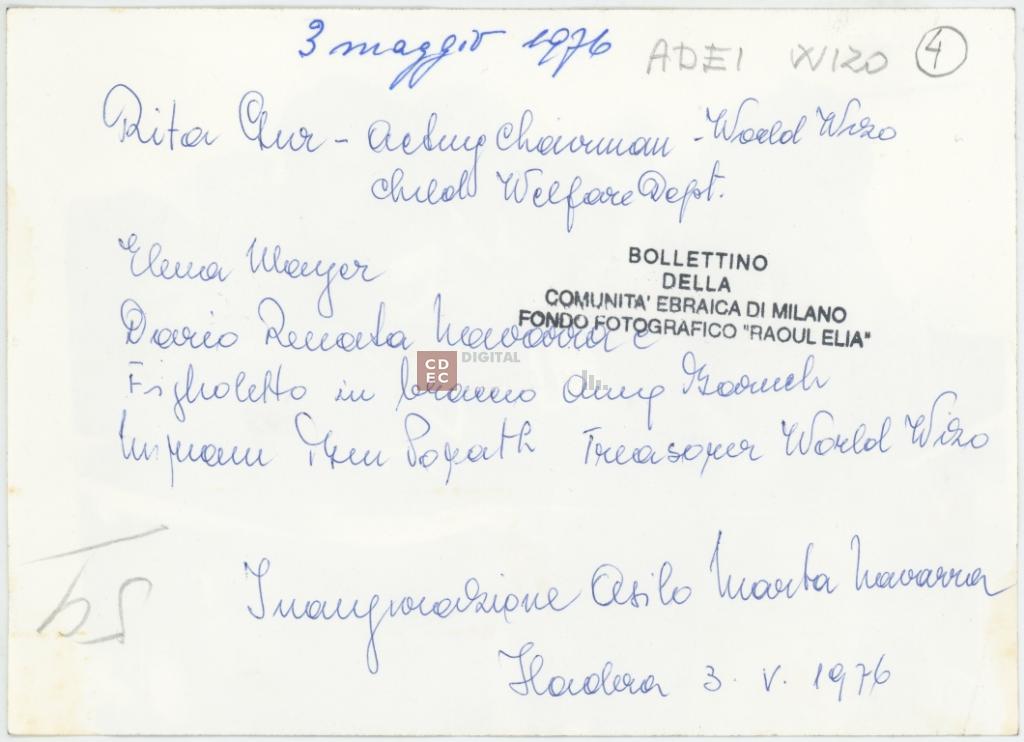 3 maggio 1976 ADEI WIZO 4
Rita - Acting Chairman - World Wizo
Child Welfare Dept.
Elena Mayer
BOLLETTINO
DELLA
COMUNITA' EBRAICA DI MILANO
FONDO FOTOGRAFICO "RAOUL ELIA"
Dario Renata Navarra e
CDEC DIGITAL
Figlioletto in braccio Baruch
Treasorer World Wizo
Inaugurazione Asilo Marta Navarra
Hadera 3. V. 1976